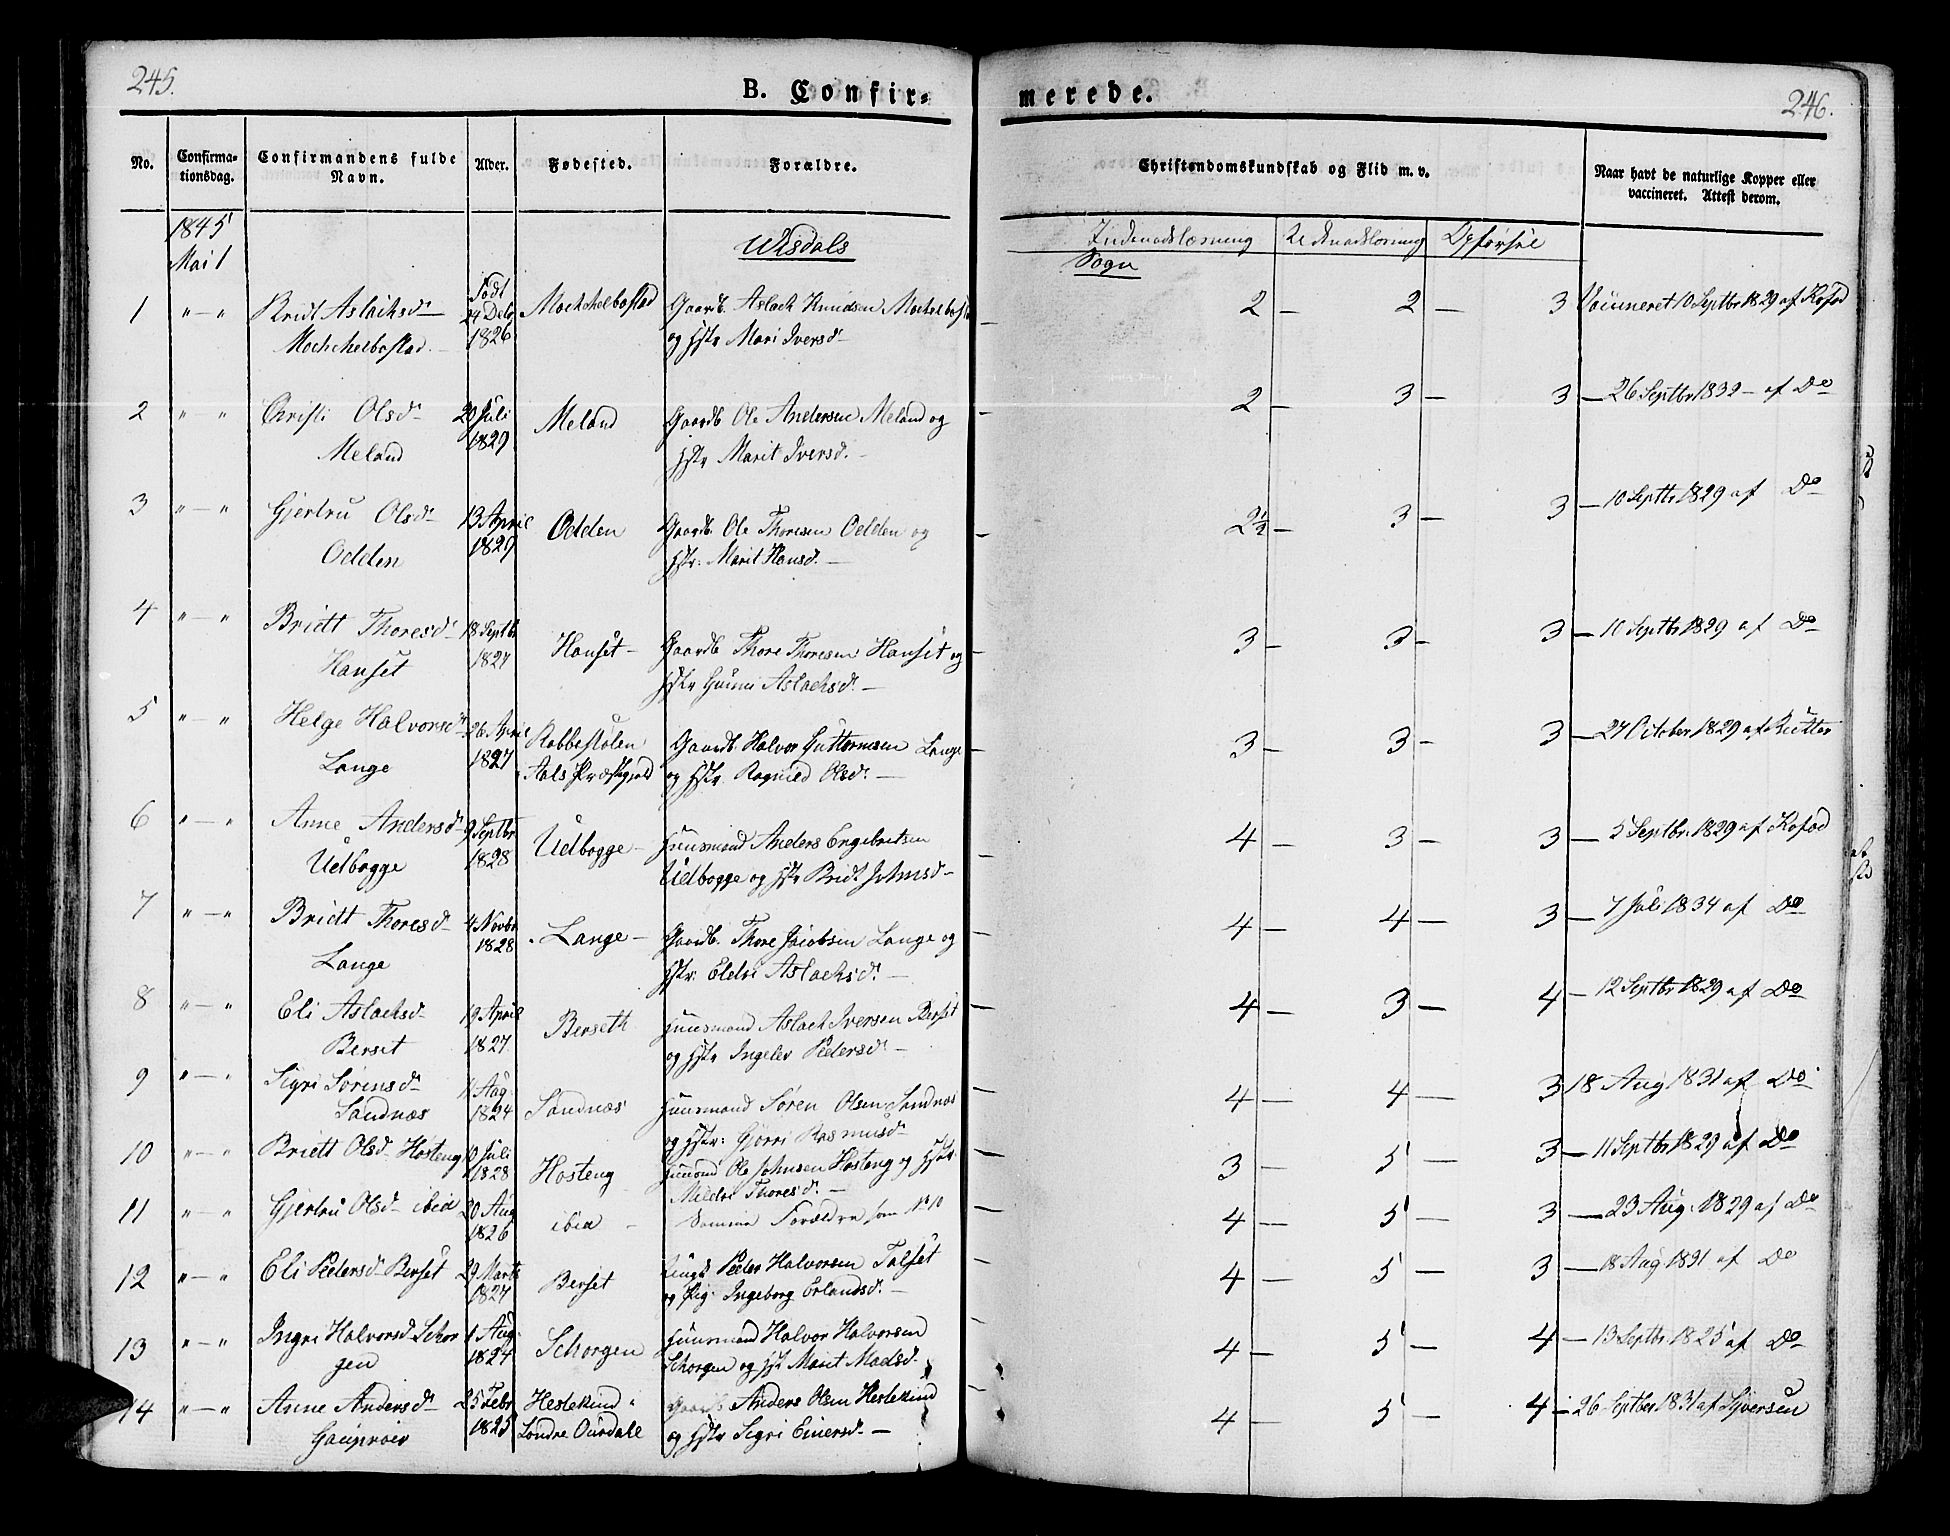 245.
B. Confir-
merede.
246.
No.
Confirma-
tionsdag.
Confirmandens fulde
Navn.
Alder.
Fødested.
Forældre.
Christendomskundskab og Flid m. v.
Naar havt de naturlige Kopper eller
vaccineret. Attest derom.
1845
Mai 1
Uisdals
Sogn
Indenadslæsning
Udenadslæsning
Opførsel
1 " — " Bridt Aslachsd. Født Mochelbostad Gaardb. Aslach Knudsen
24 Debr
Mochelbostad 1826 og Hstr Mari Iversd. —
2 — 2 — 3 Vaccineret 10 Septbr 1829 af Kofod
2 " " Christi Olsd. 20 Juli Meland Gaardb. Ole Andersen Meland og
Meland 1829 Hstr Marit Iversd. —
2 — 3 — 3 — 26 Septbr 1832 — af Do
3 " — " Gjertru Olsd. 13 April Odden Gaardb. Ole Thoresen Odden og
Odden 1829 Hstr. Marit Hansd. —
2½ — 3 — 3 — 10 Septbr 1829 af Do
4 " — " Bridt Thoresd. 18 Septbr Hanset — Gaardb. Thore Thoresen Hanset og
Hanset 1827 Hstr Guini Aslachsd. —
3 — 3 — 3 — 10 Septbr 1829 af Do
5 " — " Helge Halvorsd. 26 April Rabbestølen Gaardb. Halvor Guttormsen Lange
Lange 1827 Aals Præstgjeld og Hstr. Ragnild Olsd. —
3 — 3 — 3 — 27 October 1829 af
6 " — " Anne Andersd. 9 Septbr Udbogge — Huusmand Anders Engebretsen
Udbogge 1828 Udbogge og Hstr Bridt Johnsd —
4 — 3 — 3 — 5 Septbr. 1829 af Kofod
7 " — " Bridt Thoresd. 4 Novbr Lange — Gaardb. Thore Jacobsen Lange og
Lange 1828 Hstr. Eldri Aslachsd. —
4 — 4 — 3 — 7 Juli 1834 af Do
8 " — " Eli Aslachsd. 19 April Berseth Huusmand Aslach Iversen Berset
Berset 1827 og Hstr Ingeler Pedersd. —
4 — 3 — 4 — 12 Septbr 1829 af Do
9 " — " Sigri Sørensd. Aug Sandnæs Huusmand Søren Olsen Sandnæs
Sandnæs 1824 og Hstr: Gjørri Rasmusd.
4 — 4 — 3 18 Aug 1831 af Do
10 " — " Bridt Olsd. Hosteng Juli Hosteng Ole Johnsen Hosteng og Hstr.
1828 Mildri Thoresd. —
3 — 5 — 3 — 11 Septbr 1829 af Do
11 " — " Gjertru Olsd. ibid 20 Aug ibid — Samme Forældre som No 10
1826
4 — 5 — 3 — 23 Aug. 1829 af Do
12 " — " Eli Pedersd. Berset 29 Marts Berset Ungk Peder Halvorsen Talset
1827 og Pig. Ingeborg Erlandsd. —
4 — 5 — 3 — 18 Aug 1831 af Do
13 " — " Ingri Halvorsd. Schor 1 Aug. Schorgen Huusmand Halvor Halvorsen
gen 1824 Schorgen og Hst Marit Madsd.
4 — 5 — 4 — 13 Septbr 1825 af Do
14 " — " Anne Andersd. 25 Febr Heslekind i Gaardb Anders Olsen Heslekind
1825 Søndre Ourdale og Hstr Sigri Einersd. —
4 — 5 — 4 — 26 Septber 1831 af Syversen